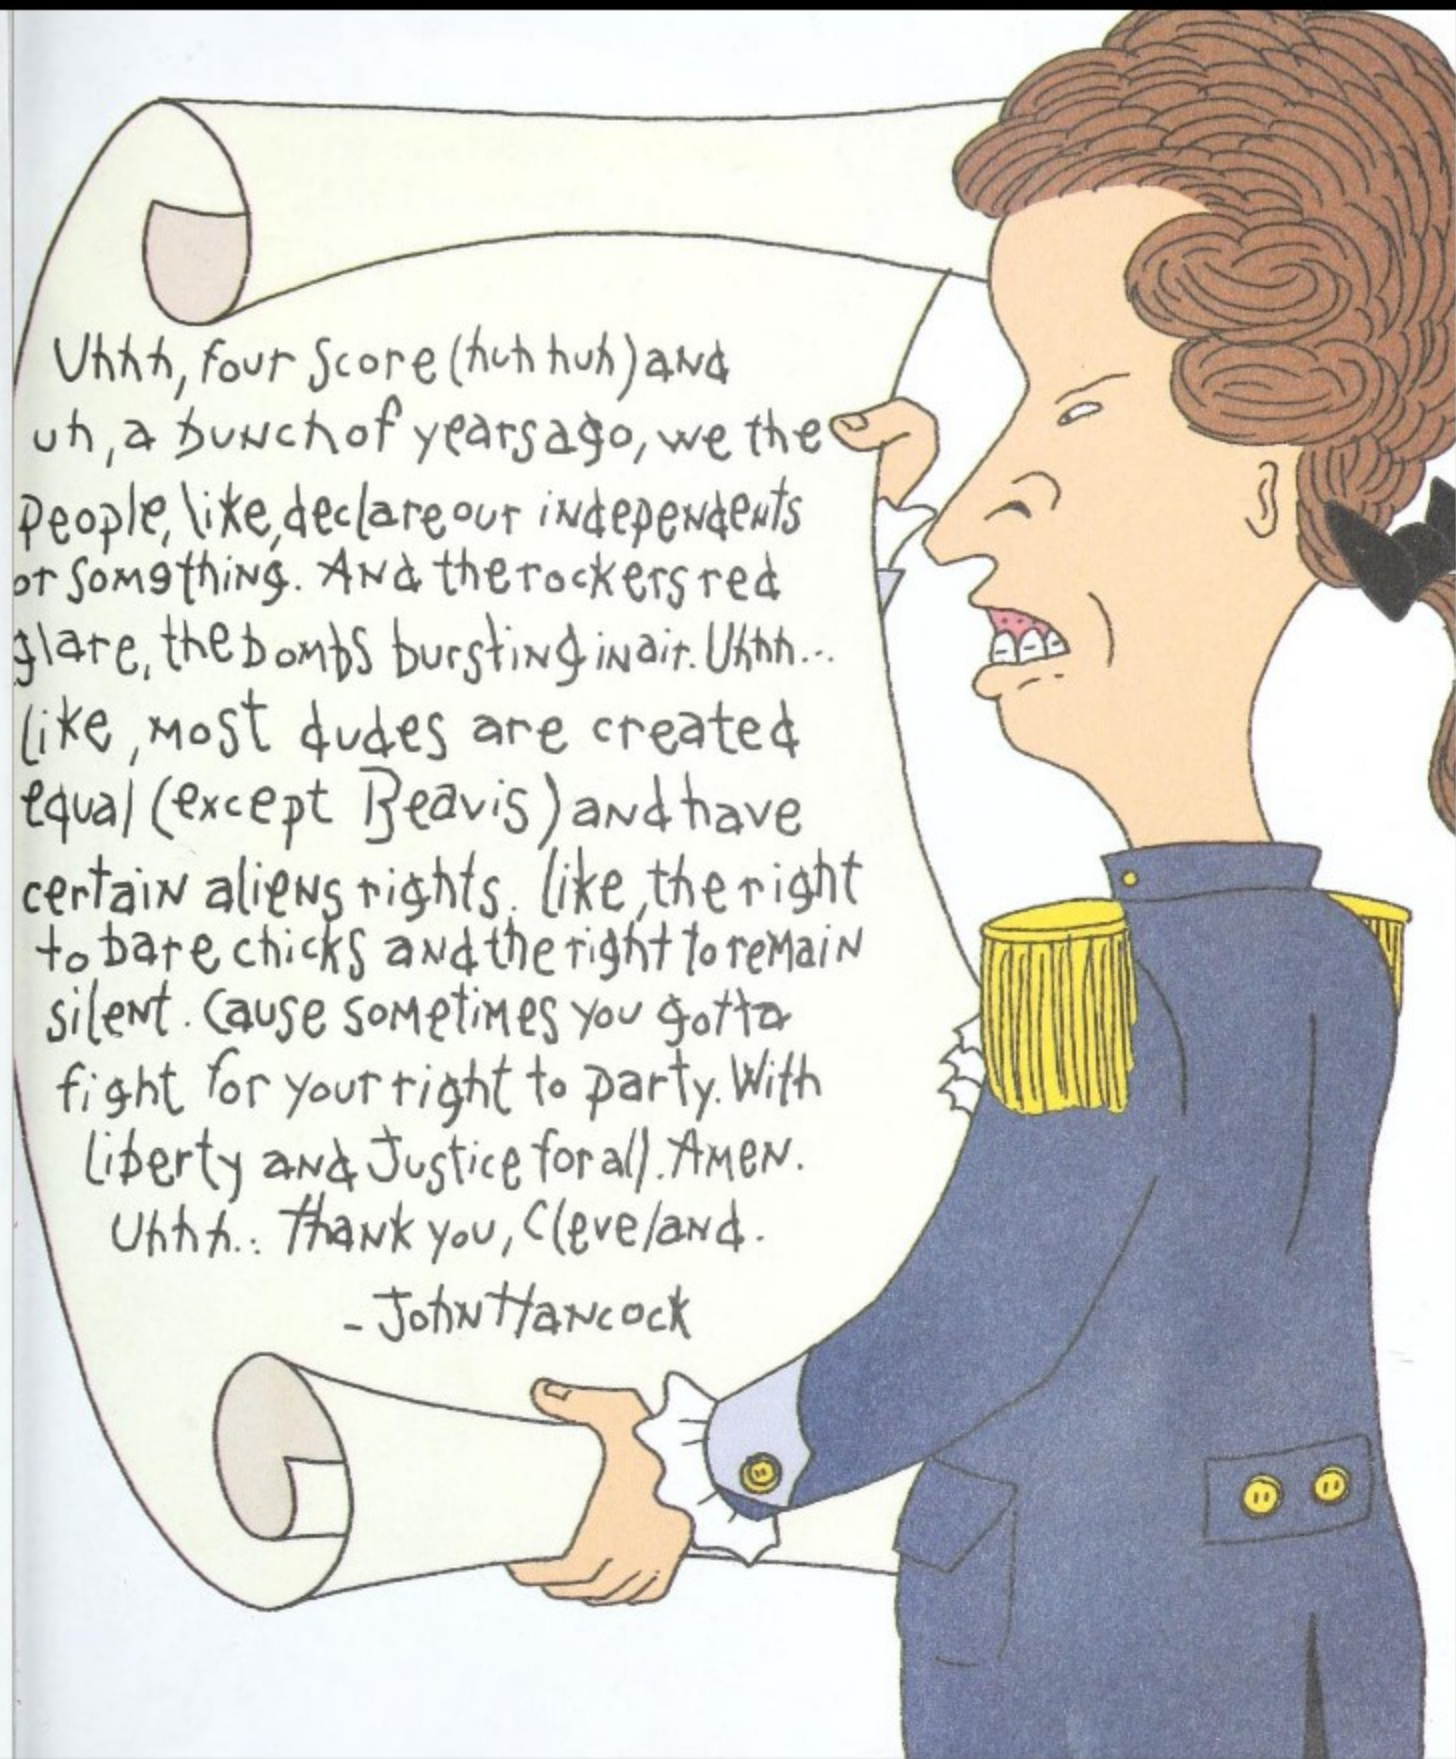 Uhhh, four Score (huh huh) and
uh, a bunch of years ago, we the
People, like, declare our independents
or something. And the rockers red
glare, the bombs bursting in air. Uhhh...
like, most dudes are created
equal (except Beavis) and have
certain aliens rights. Like, the right
to bare chicks and the right to remain
silent. Cause sometimes you gotta
fight for your right to party. With
liberty and Justice for all. Amen.
Uhhh.. Thank you, Cleveland.
- John Hancock